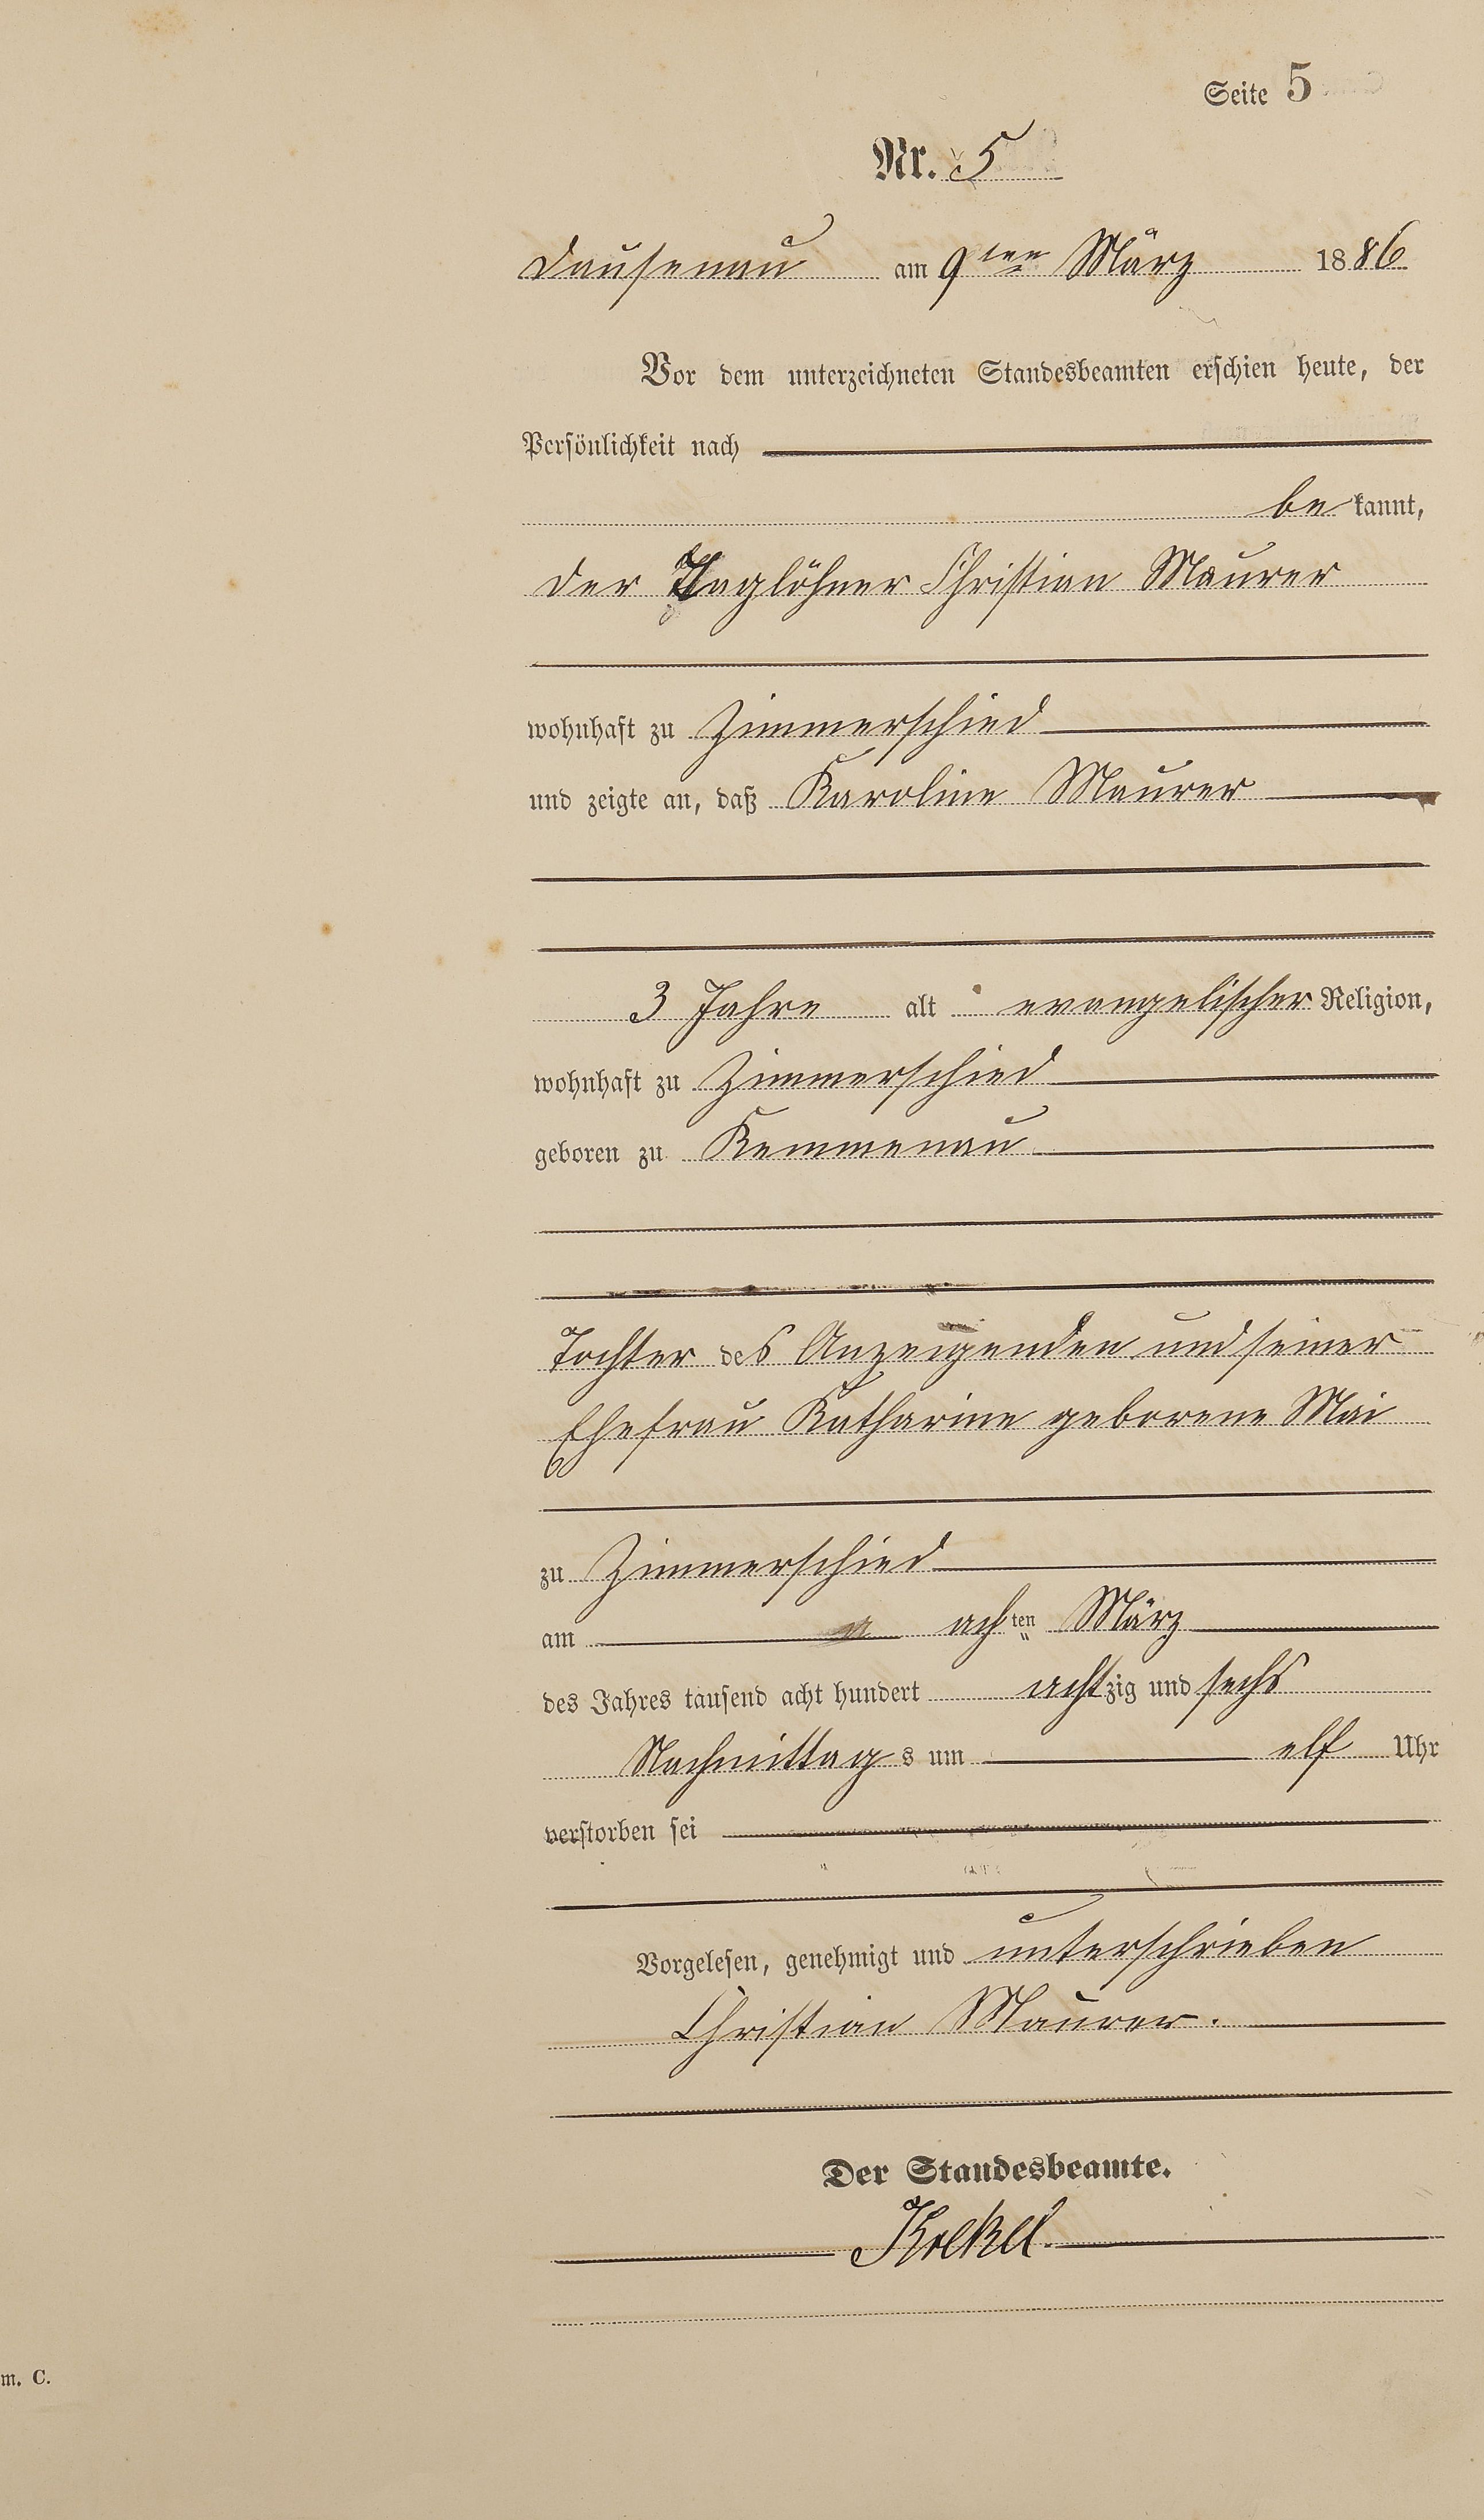 Seite 5
Nr. 5
Dausenau am 9ten März 1886
Vor dem unterzeichneten Standesbeamten erschien heute, der
Persönlichkeit nach
be kannt,
der Taglöhner Christian Maurer
wohnhaft zu Zimmerschied
und zeigte an, daß Karoline Maurer
3 Jahre alt evangelischer Religion,
wohnhaft zu Zimmerschied
geboren zu Kemmenau
Tochter des Anzeigenden und seiner
Ehefrau Katharine geborene Mai
zu Zimmerschied
am achten März
des Jahres tausend acht hundert achtzig und sechs
Nachmittags um elf Uhr
verstorben sei
Vorgelesen, genehmigt und unterschrieben
Christian Maurer.
Der Standesbeamte.
m. C.